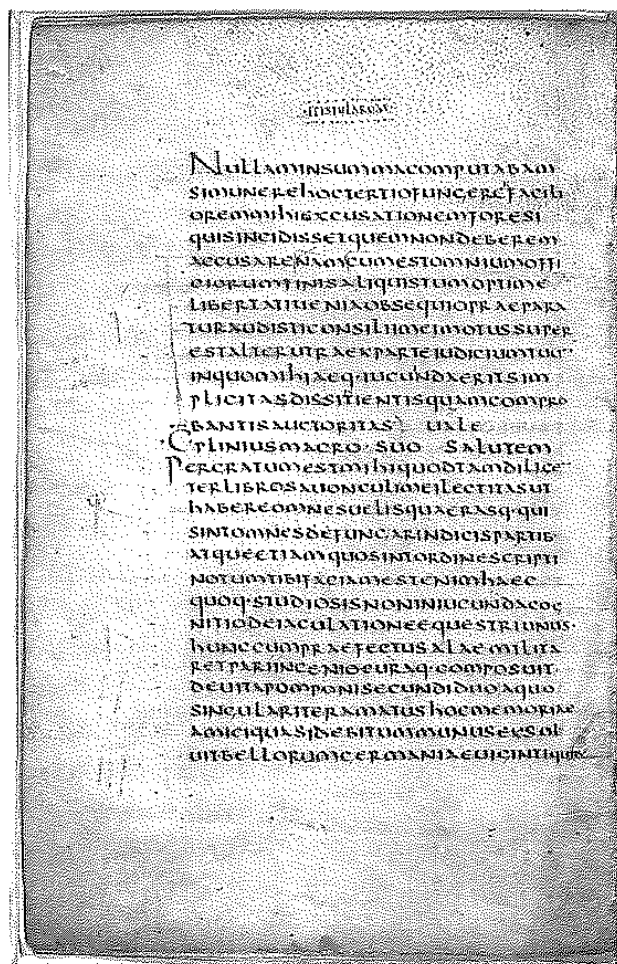 ·EPISTULARUM·
NULLAMINSUMMACOMPUTABAM
SIMUNEREHOCTERTIOFUNGERERFACILI
OREMMIHIEXCUSATIONEMFORESI
QUISINCIDISSETQUEMNONDEBEREM
ACCUSARENAMCUMESTOMNIUMOFFI
CIORUMFINISALIQUISTUMOPTIME
LIBERTATIUENIAOBSEQUIOPRAEPARA
TURAUDISTICONSILIIMEIMOTUSSUPER
ESTALTERUTRAEXPARTEIUDICIUMTUU
INQUOMIHIAEQ·IUCUNDAERITSIM
PLICITASDISSITIENTISQUAMCOMPRO
BANTISAUCTORITAS UALE
·C·PLINIUSMACRO·SUO SALUTEM
PERGRATUMESTMIHIQUODTAMDILIGE
TERLIBROSAUONCULIMEILECTITASUT
HABEREOMNESUELISQUAERASQ·QUI
SINTOMNESDEFUNGARINDICISPARTIB
ATQUEETIAMQUOSINTORDINESCRIPTI
NOTUMTIBIFACIAMESTENIMHAEC
QUOQ·STUDIOSISNONINIUCUNDACOG
NITIODEIACULATIONEEQUESTRIUNUS·
HUNCCUMPRAEFECTUSALAEMILITA
RETPARIINGENIOCURAQ·COMPOSUIT·
DEUITAPOMPONISECUNDIDUOAQUO
SINGULARITERAMATUSHOCMEMORIAE
AMICIQUASIDEBITUMMUNUSEXSOL
UITBELLORUMGERMANIAEUIGINTIQUIB